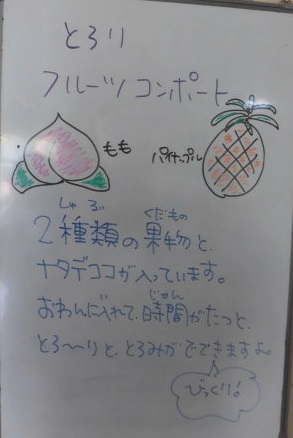 とろり
フルーツコンポート
もも
パイナップル
しゅるい
くだもの
2種類の果物と、
ナタデココが入っています。
じかん
おわんに入れて、時間がたつと、
とろ〜りと、とろみがでてきますよ。
びっくり!